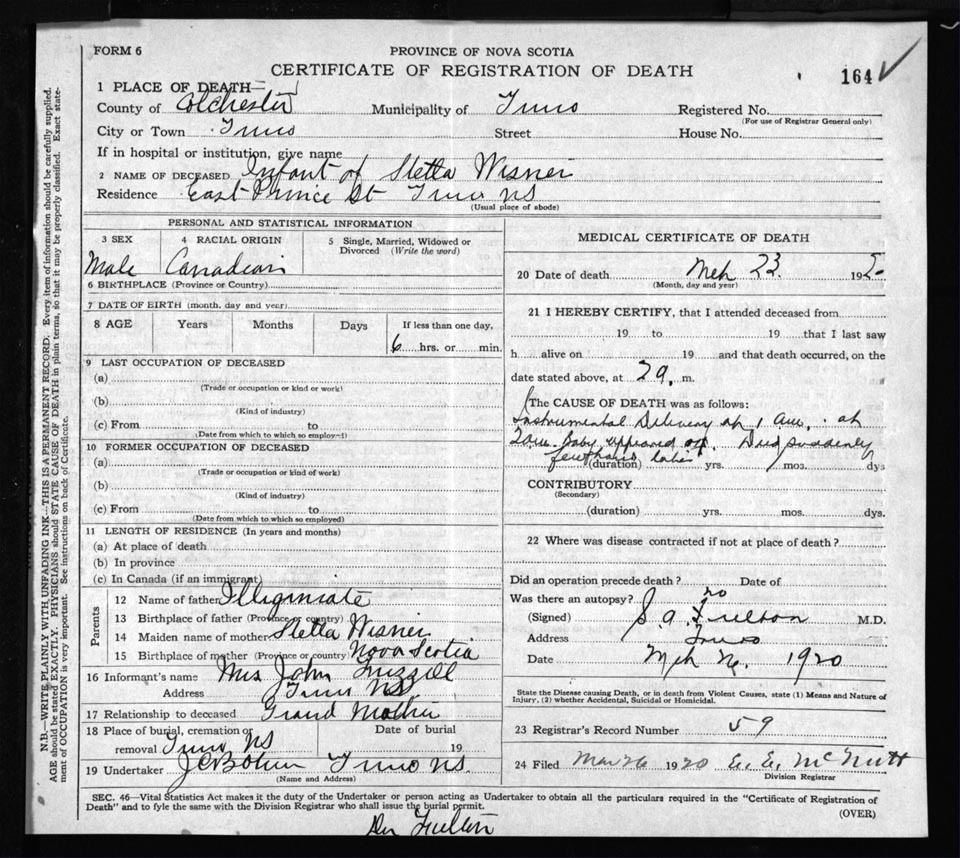 FORM 6
PROVINCE OF NOVA SCOTIA
CERTIFICATE OF REGISTRATION OF DEATH
164
1 PLACE OF DEATH
County of Colchester Municipality of Truro Registered No.
(For use of Registrar General only)
City or Town Truro Street House No.
If in hospital or institution, give name
2 NAME OF DECEASED Infant of Stella Wisner
Residence East Prince St Truro NS
(Usual place of abode)
PERSONAL AND STATISTICAL INFORMATION
3 SEX 4 RACIAL ORIGIN 5 Single, Married, Widowed or Divorced (Write the word)
Male Canadian
6 BIRTHPLACE (Province or Country)
7 DATE OF BIRTH (month, day and year)
8 AGE Years Months Days If less than one day,
6 hrs. or min.
9 LAST OCCUPATION OF DECEASED
(a)
(Trade or occupation or kind or work)
(b)
(Kind of industry)
(c) From to
(Date from which to which so employed)
10 FORMER OCCUPATION OF DECEASED
(a)
(Trade or occupation or kind of work)
(b)
(Kind of industry)
(c) From to
(Date from which to which so employed)
11 LENGTH OF RESIDENCE (In years and months)
(a) At place of death
(b) In province
(c) In Canada (if an immigrant)
Parents
12 Name of father Illiginiate
13 Birthplace of father (Province or country)
14 Maiden name of mother Stella Wisner
15 Birthplace of mother (Province or country) Nova Scotia
16 Informant's name Mrs John
Address Truro NS
17 Relationship to deceased Grand Mother
18 Place of burial, cremation or removal Truro NS Date of burial 19
19 Undertaker Truro NS.
(Name and Address)
MEDICAL CERTIFICATE OF DEATH
20 Date of death Mch 23. 192
(Month, day and year)
21 I HEREBY CERTIFY, that I attended deceased from
19 to 19 that I last saw
h alive on 19 and that death occurred, on the
date stated above, at m.
The CAUSE OF DEATH was as follows:
Instrumental Delivery at 1 at
Baby appeared Died suddenly
few hours later
(duration) yrs. mos. dys
CONTRIBUTORY
(Secondary)
(duration) yrs. mos. dys.
22 Where was disease contracted if not at place of death?
Did an operation precede death? Date of
Was there an autopsy? no
(Signed) S. A. Fulton M.D.
Address Truro
Date Mch 1920
State the Disease causing Death, or in death from Violent Causes, state (1) Means and Nature of
Injury, (2) whether Accidental, Suicidal or Homicidal.
23 Registrar's Record Number 59
24 Filed Mar 26 1920 E. E. McNutt
Division Registrar
SEC. 46—Vital Statistics Act makes it the duty of the Undertaker or person acting as Undertaker to obtain all the particulars required in the "Certificate of Registration of
Death" and to fyle the same with the Division Registrar who shall issue the burial permit.
(OVER)
Dr Fulton
N.B.—WRITE PLAINLY WITH UNFADING INK—THIS IS A PERMANENT RECORD. Every item of information should be carefully supplied.
AGE should be stated EXACTLY. PHYSICIANS should STATE CAUSE OF DEATH in plain terms, so that it may be properly classified. Exact state-
ment of OCCUPATION is very important. See instructions on back of Certificate.